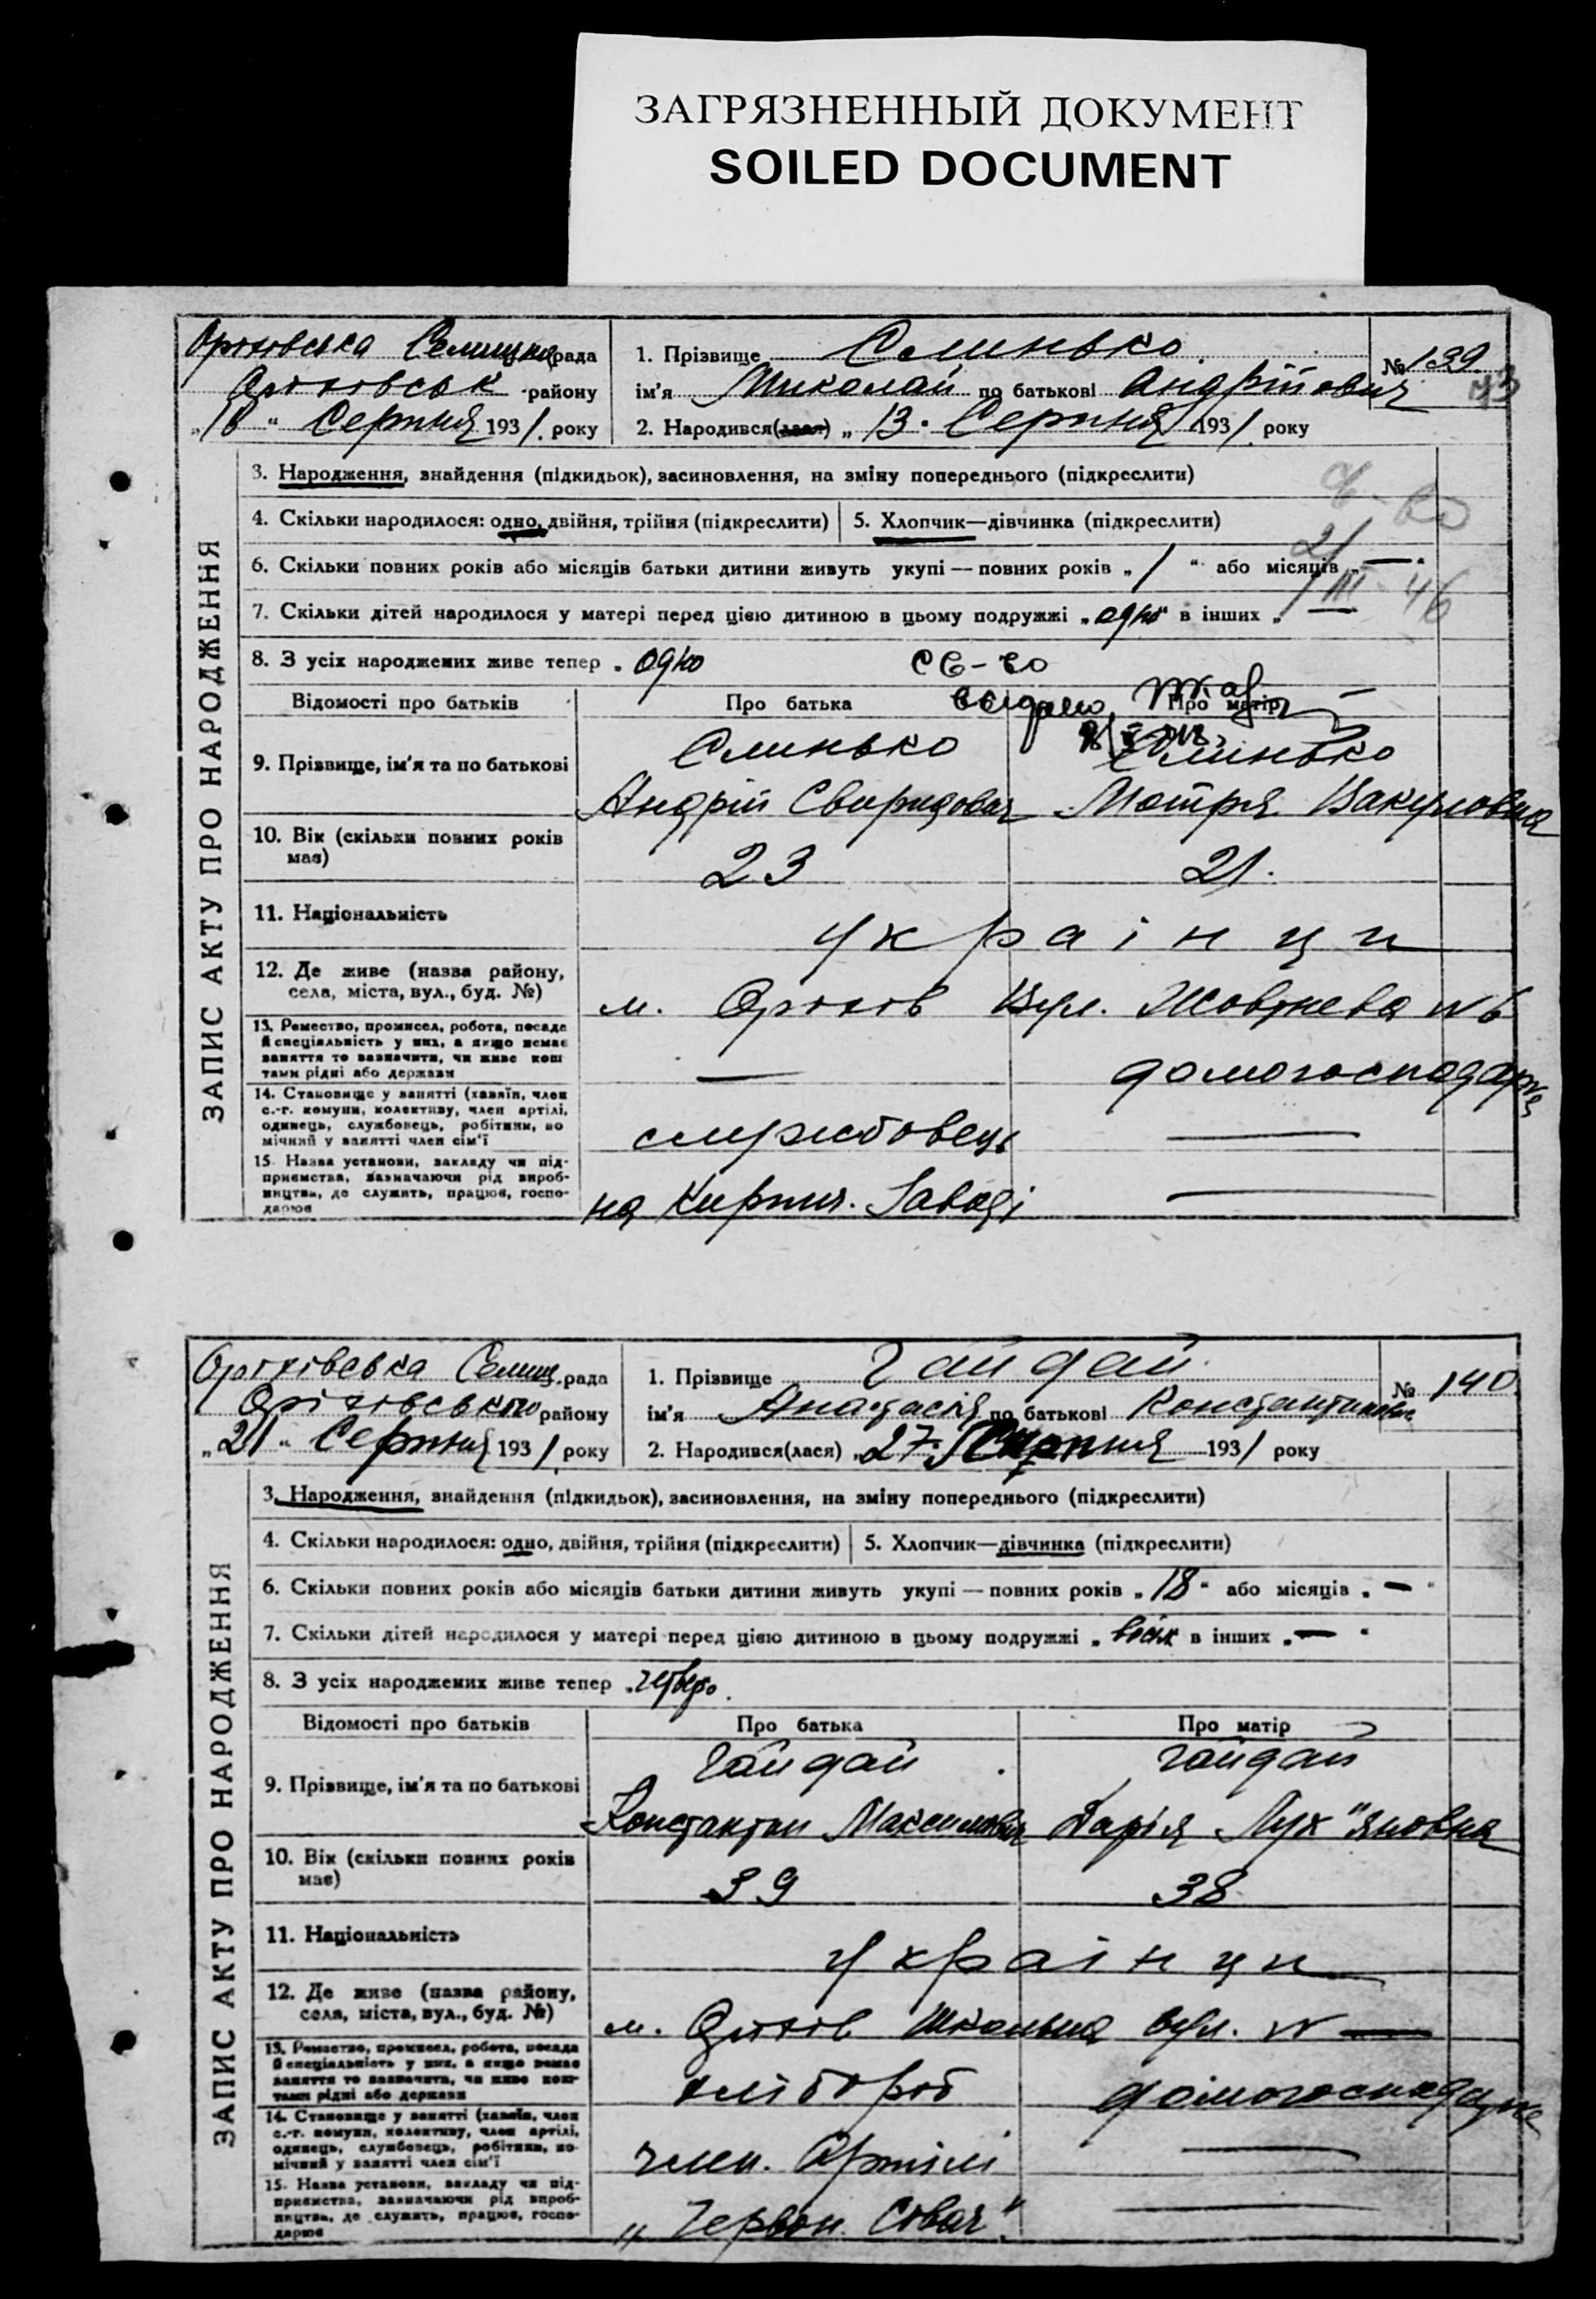 ЗАГРЯЗНЕННЫЙ ДОКУМЕНТ
SOILED DOCUMENT
ЗАПИС АКТУ ПРО НАРОДЖЕННЯ
Оріховська Селищна рада
Оріховськ району
Серпня 1931. року
1. Прізвище Слинько
№ 139.
ім'я Миколай по батькові Андрійович
2. Народився(лася) „13. Серпня 1931. року
3. Народження, знайдення (підкидьок), засиновлення, на зміну попереднього (підкреслити)
4. Скільки народилося: одно, двійня, трійня (підкреслити)
5. Хлопчик—дівчинка (підкреслити)
6. Скільки повних років або місяців батьки дитини живуть укупі — повних років „1“ або місяців „—“
7. Скільки дітей народилося у матері перед цією дитиною в цьому подружжі „одно“ в інших „—
8. З усіх народжених живе тепер „одно
св-во
видано
21/III 46
Відомості про батьків Про батька Про матір
9. Прізвище, ім'я та по батькові
Слинько Слинько
Андрій Свиридович Мотря Вакуловна
10. Вік (скільки повних років має)
23 21.
11. Національність
українци
12. Де живе (назва району, села, міста, вул., буд. №)
м. Оріхів Вул. Жовтнева N 6
13. Ремество, промисел, робота, посада й спеціальність у них, а якщо немає заняття то зазначити, чи живе коштами рідні або держави
— домогосподарка
14. Становище у занятті (хазяїн, член с.-г. комуни, колективу, член артілі, одинець, службовець, робітник, помічний у занятті член сім'ї
службовець —
15. Назва установи, закладу чи підприємства, зазначаючи рід виробництва, де служить, працює, господарює
на Кирпич. Заводі —
ЗАПИС АКТУ ПРО НАРОДЖЕННЯ
Оріхівська Селищ. рада
Оріхівського району
„21“ Серпня 1931 року
1. Прізвище Гайдай
№ 140.
ім'я Анастасія по батькові Константиновна
2. Народився(лася) „27. Серпня 1931 року
3. Народження, знайдення (підкидьок), засиновлення, на зміну попереднього (підкреслити)
4. Скільки народилося: одно, двійня, трійня (підкреслити)
5. Хлопчик—дівчинка (підкреслити)
6. Скільки повних років або місяців батьки дитини живуть укупі — повних років „18“ або місяців „—“
7. Скільки дітей народилося у матері перед цією дитиною в цьому подружжі „вісім в інших „—“
8. З усіх народжених живе тепер „четверо.
Відомості про батьків Про батька Про матір
9. Прізвище, ім'я та по батькові
Гайдай Гайдай
Константин Максимович Дарія Лук"яновна
10. Вік (скільки повних років має)
39 38
11. Національність
українци
12. Де живе (назва району, села, міста, вул., буд. №)
м. Оріхів Школьна вул. N —
13. Ремество, промисел, робота, посада й спеціальність у них, а якщо немає заняття то зазначити, чи живе коштами рідні або держави
хлібороб домогосподарка
14. Становище у занятті (хазяїн, член с.-г. комуни, колективу, член артілі, одинець, службовець, робітник, помічний у занятті член сім'ї
член. Артілі —
15. Назва установи, закладу чи підприємства, зазначаючи рід виробництва, де служить, працює, господарює
„Червон. —